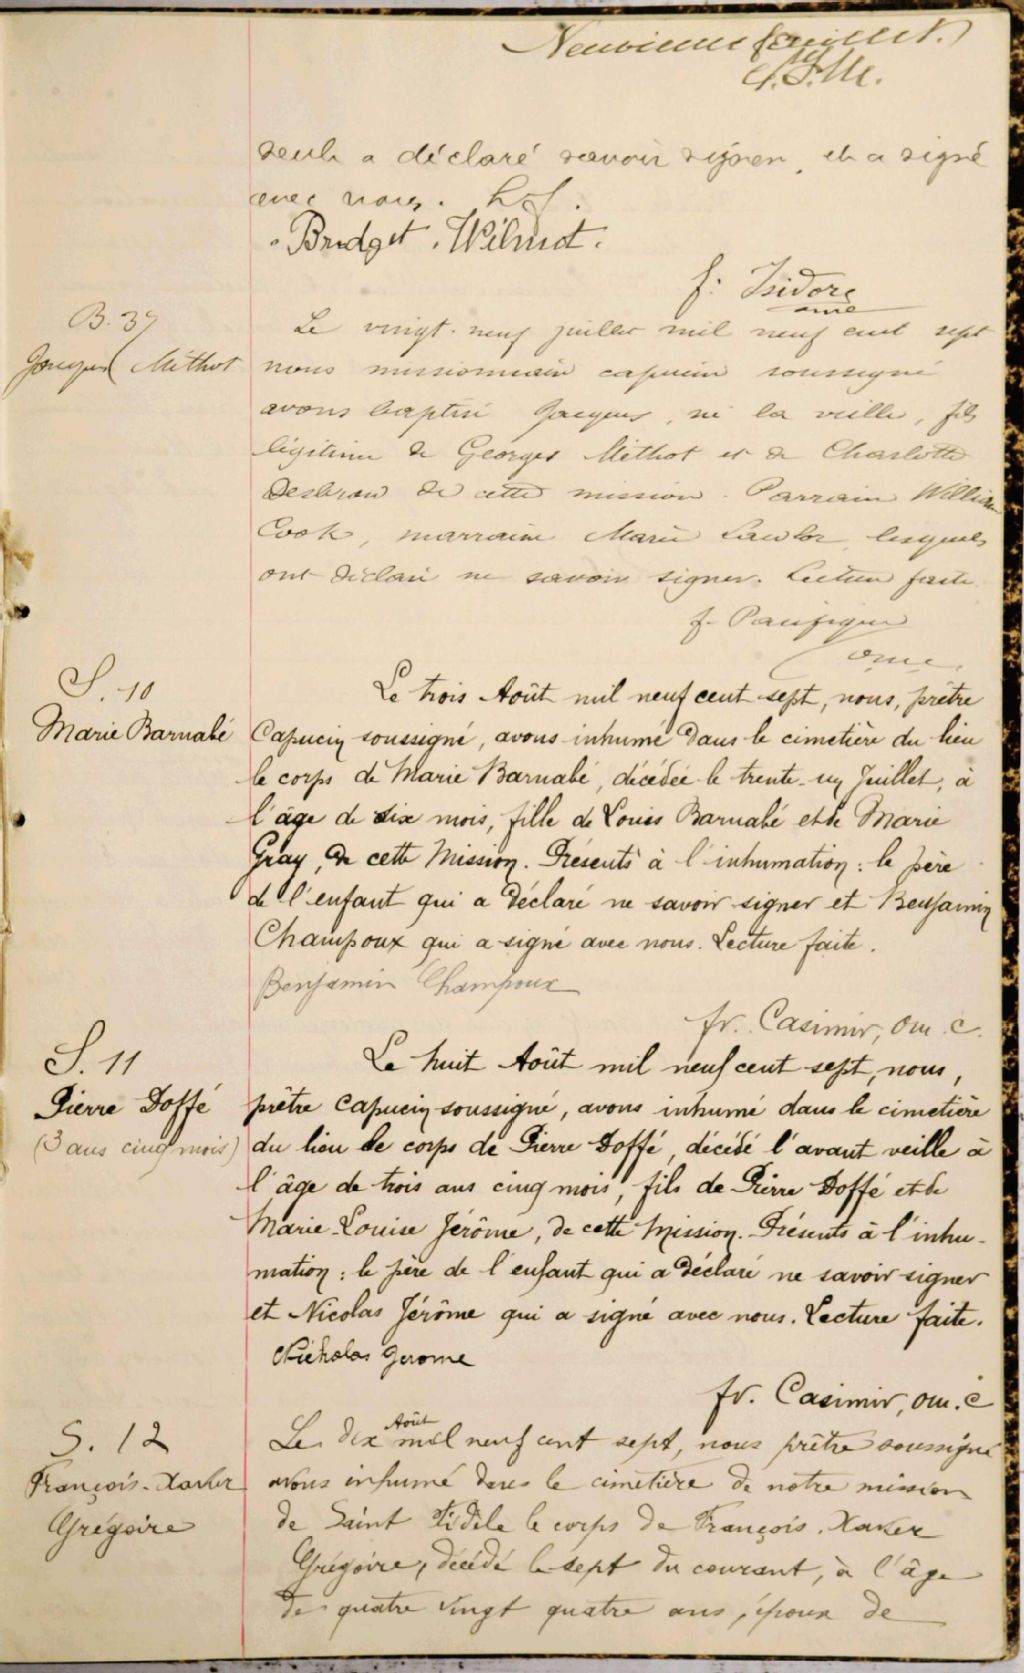 Neuvième feuillet.
seule a déclaré savoir signer, et a signé
avec nous. L. f.
Bridget Wilmot.
f. Isidore
omc
B. 37
Jacques Méthot
Le vingt-neuf juillet mil neuf cent sept
nous missionnaire capucin soussigné
avons baptisé Jacques, né la veille, fils
légitime de Georges Méthot et de Charlotte
de cette mission. Parrain William
Cook, marraine Marie Lawlor, lesquels
ont déclaré ne savoir signer. Lecture faite.
f. Pacifique
omc.
S. 10
Marie Barnabé
Le trois Août mil neuf cent sept, nous, prêtre
Capucin soussigné, avons inhumé dans le cimetière du lieu
le corps de Marie Barnabé, décédée le trente-un Juillet, à
l'âge de six mois, fille de Louis Barnabé et de Marie
Gray, de cette Mission. Présents à l'inhumation : le père
de l'enfant qui a déclaré ne savoir signer et Benjamin
Champoux qui a signé avec nous. Lecture faite.
Benjamin Champoux
fr. Casimir, om. c.
S. 11
Pierre Doffé
(3 ans cinq mois)
Le huit Août mil neuf cent sept, nous,
prêtre Capucin soussigné, avons inhumé dans le cimetière
du lieu le corps de Pierre Doffé, décédé l'avant veille à
l'âge de trois ans cinq mois, fils de Pierre Doffé et de
Marie-Louise Jérôme, de cette Mission. Présents à l'inhu-
mation : le père de l'enfant qui a déclaré ne savoir signer
et Nicolas Jérôme qui a signé avec nous. Lecture faite.
Nicholas Jerome
fr. Casimir, om. c
S. 12
François-Xavier
Grégoire
Août
Le dix mil neuf cent sept, nous prêtre soussigné
avons inhumé dans le cimetière de notre mission
de Saint Fidèle le corps de François-Xavier
Grégoire, décédé le sept du courant, à l'âge
de quatre vingt quatre ans, époux de